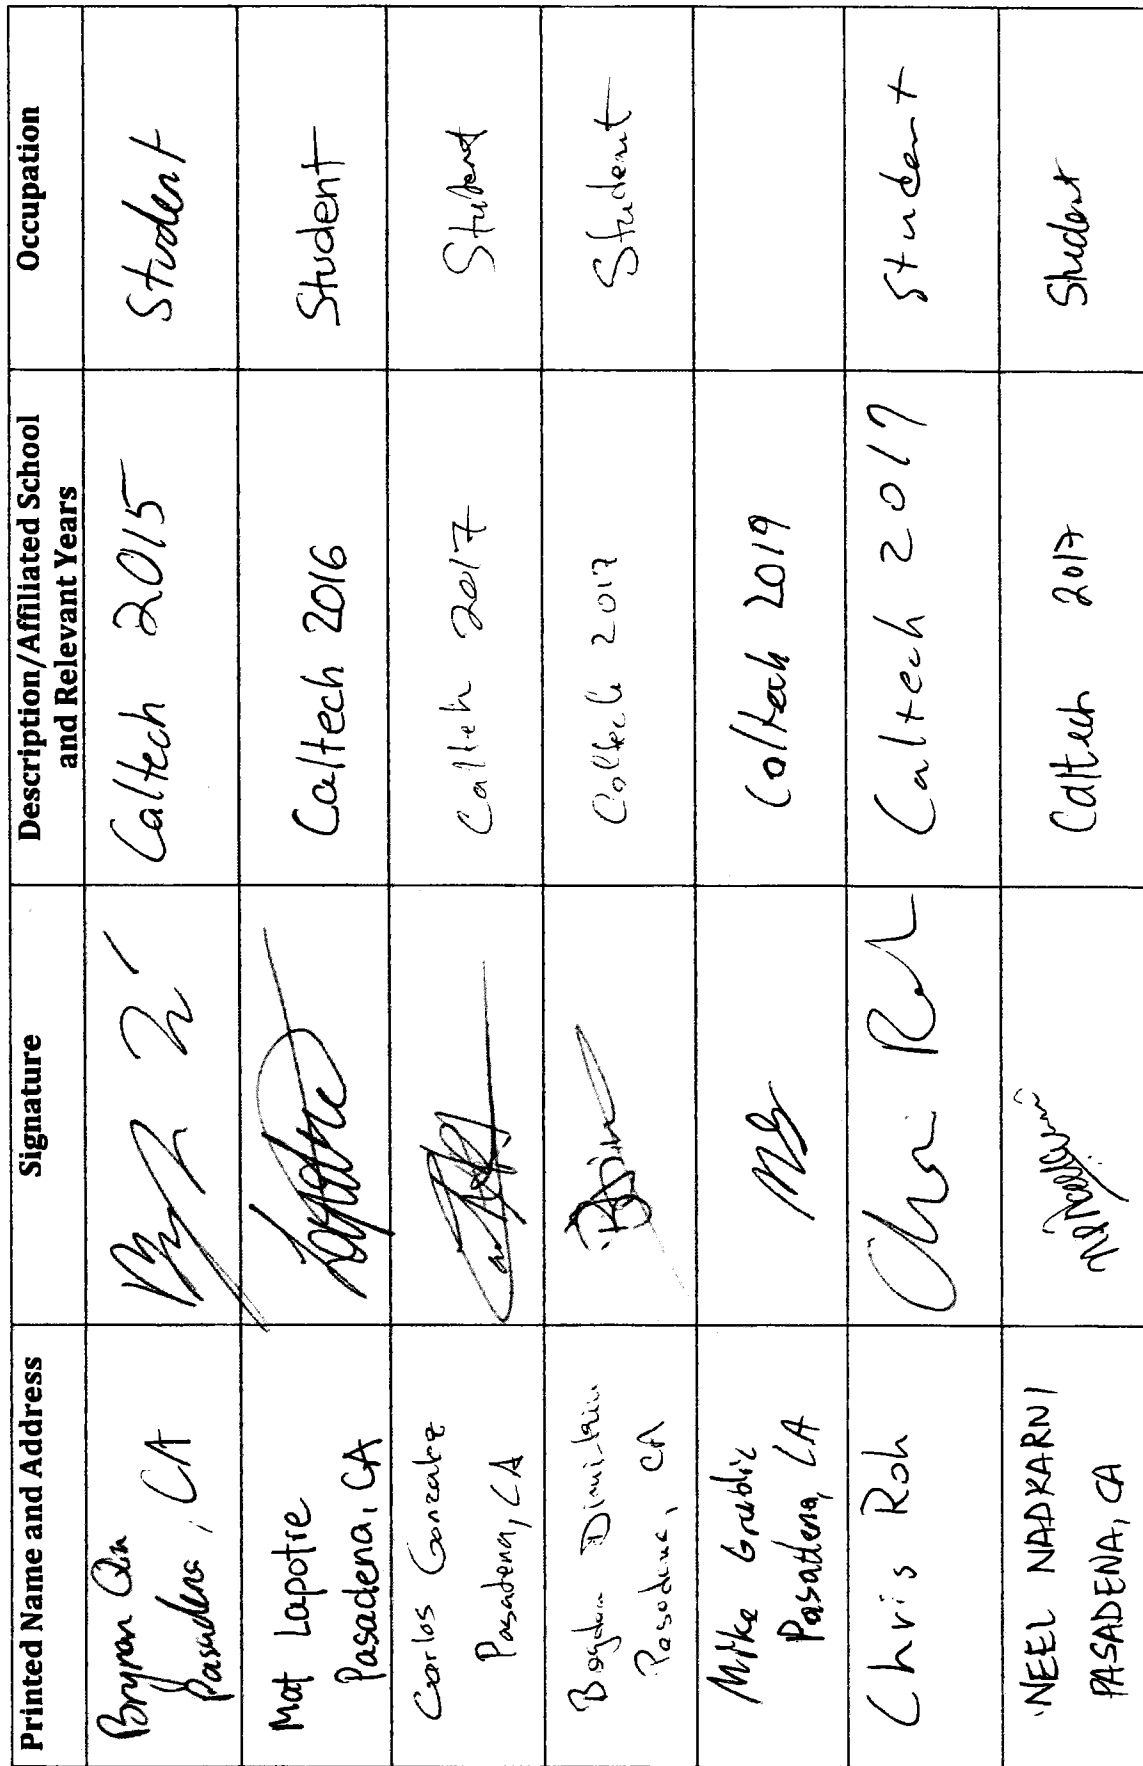 Printed Name and Address
Signature
Description/Affiliated School
and Relevant Years
Occupation
Pasadena, CA
Caltech 2015
Student
Mat Lapotre
Pasadena, CA
Caltech 2016
Student
Carlos Gonzalez
Pasadena, CA
Caltech 2017
Student
Bogdan
Pasadena, CA
Caltech 2017
Student
Mike Grubliz
Pasadena, CA
Caltech 2019
Chris Roh
Chris Roh
Caltech 2017
Student
NEEL NADKARNI
PASADENA, CA
Caltech 2017
Student